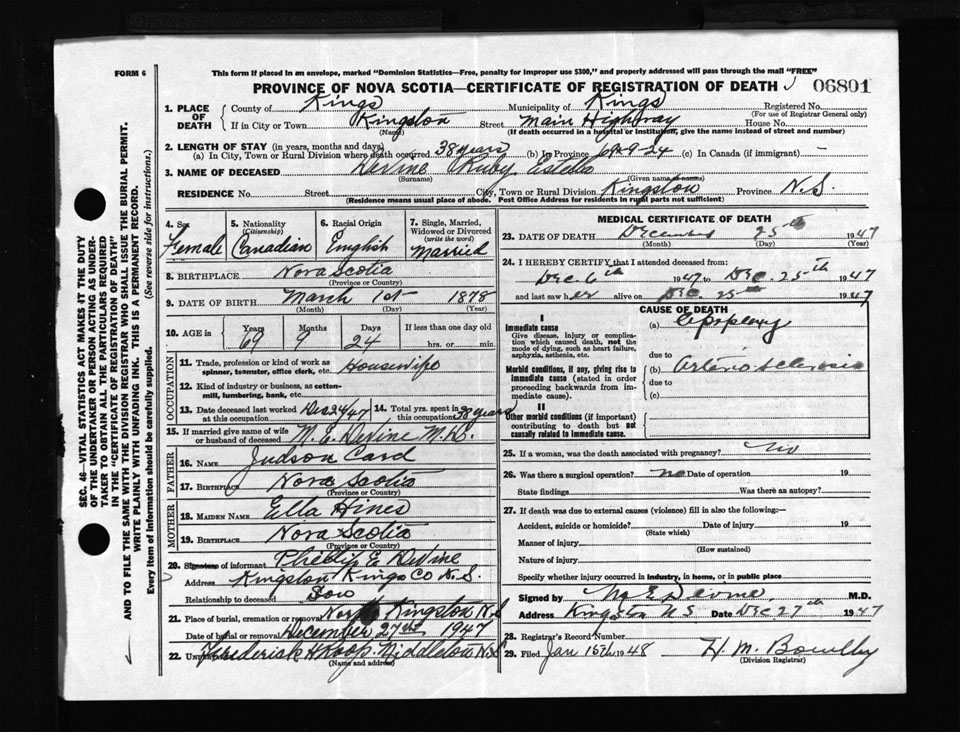 FORM 6
This form if placed in an envelope, marked "Dominion Statistics—Free, penalty for improper use $300," and properly addressed will pass through the mail "FREE"
PROVINCE OF NOVA SCOTIA—CERTIFICATE OF REGISTRATION OF DEATH 06801
1. PLACE OF DEATH County of Kings Municipality of Kings Registered No.
(For use of Registrar General only)
If in City or Town Kingston Street Main Highway House No.
(Name) (If death occurred in a hospital or institution, give the name instead of street and number)
2. LENGTH OF STAY (in years, months and days)
(a) In City, Town or Rural Division where death occurred 38 years (b) In Province 69-9-24 (c) In Canada (if immigrant) —
3. NAME OF DECEASED DeVine Ruby
(Surname) (Given names)
RESIDENCE No. Street City, Town or Rural Division Kingston Province N.S.
(Residence means usual place of abode. Post Office Address for residents in rural parts not sufficient)
4. Sex
Female
5. Nationality
(Citizenship)
Canadian
6. Racial Origin
English
7. Single, Married, Widowed or Divorced
(write the word)
Married
8. BIRTHPLACE Nova Scotia
(Province or Country)
9. DATE OF BIRTH March 1st 1878
(Month) (Day) (Year)
10. AGE in Years Months Days If less than one day old
69 9 24 hrs. or min.
OCCUPATION
11. Trade, profession or kind of work as spinner, teamster, office clerk, etc. Housewife
12. Kind of industry or business, as cotton-mill, lumbering, bank, etc.
13. Date deceased last worked at this occupation Dec 24/47 14. Total yrs. spent in this occupation 38 years
15. If married give name of wife or husband of deceased M. E. DeVine M.D.
FATHER
16. NAME Judson Card
17. BIRTHPLACE Nova Scotia
(Province or Country)
MOTHER
18. MAIDEN NAME Ella Hines
19. BIRTHPLACE Nova Scotia
(Province or Country)
20. Signature of informant Phillip E DeVine
Address Kingston Kings Co N.S.
Relationship to deceased Son
21. Place of burial, cremation or removal North Kingston N.S
Date of burial or removal December 27th 1947
22. UNDERTAKER Frederick Roop Middleton N.S.
(Name and address)
MEDICAL CERTIFICATE OF DEATH
23. DATE OF DEATH December 25th 1947
(Month) (Day) (Year)
24. I HEREBY CERTIFY that I attended deceased from:
Dec 6th 1947 to Dec. 25th 1947
and last saw her alive on Dec. 25th 1947
CAUSE OF DEATH
I
Immediate cause
Give disease, injury or complication which caused death, not the mode of dying, such as heart failure, asphyxia, asthenia, etc.
(a) Apoplexy
due to
Morbid conditions, if any, giving rise to immediate cause (stated in order proceeding backwards from immediate cause).
(b) Arterio sclerosis
due to
(c)
II
Other morbid conditions (if important) contributing to death but not causally related to immediate cause.
25. If a woman, was the death associated with pregnancy? No
26. Was there a surgical operation? no Date of operation 19
State findings Was there an autopsy?
27. If death was due to external causes (violence) fill in also the following:—
Accident, suicide or homicide? Date of injury 19
(State which)
Manner of injury
(How sustained)
Nature of injury
Specify whether injury occurred in industry, in home, or in public place
Signed by M E Devine M.D.
Address Kingston N S Date Dec 27th 1947
28. Registrar's Record Number
29. Filed Jan 15th 1948 H. M.
(Division Registrar)
SEC. 46—VITAL STATISTICS ACT MAKES IT THE DUTY
OF THE UNDERTAKER OR PERSON ACTING AS UNDER-
TAKER TO OBTAIN ALL THE PARTICULARS REQUIRED
IN THE "CERTIFICATE OF REGISTRATION OF DEATH"
AND TO FILE THE SAME WITH THE DIVISION REGISTRAR WHO SHALL ISSUE THE BURIAL PERMIT.
WRITE PLAINLY WITH UNFADING INK. THIS IS A PERMANENT RECORD.
Every item of information should be carefully supplied. (See reverse side for instructions.)